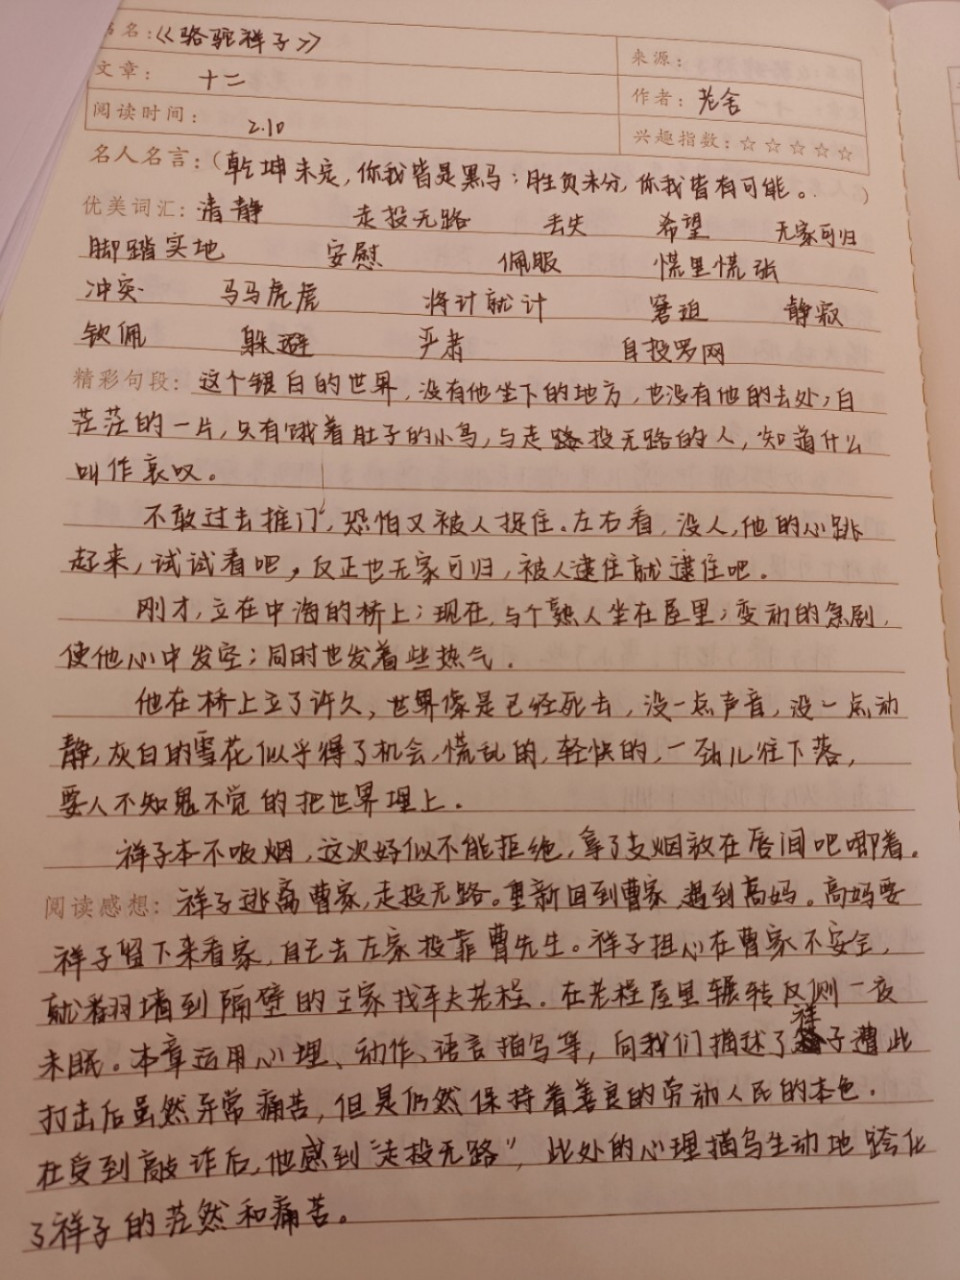 书名：《骆驼祥子》
来源：
文章： 十二
作者：老舍
阅读时间： 2.10
兴趣指数：☆☆☆☆☆
名人名言：（乾坤未定，你我皆是黑马；胜负未分，你我皆有可能。）
优美词汇：清静 走投无路 丢失 希望 无家可归
脚踏实地 安慰 佩服 慌里慌张
冲突 马马虎虎 将计就计 窘迫 静寂
钦佩 躲避 严肃 自投罗网
精彩句段：这个银白的世界，没有他坐下的地方，也没有他的去处；白
茫茫的一片，只有饿着肚子的小鸟，与走投无路的人，知道什么
叫作哀叹。
不敢过去推门，恐怕又被人捉住。左右看，没人，他的心跳
起来，试试看吧，反正也无家可归，被人逮住就逮住吧．
刚才，立在中海的桥上；现在，与个熟人坐在屋里；变动的急剧，
使他心中发空；同时也发着些热气．
他在桥上立了许久，世界像是已经死去，没一点声音，没一点动
静，灰白的雪花似乎得了机会，慌乱的，轻快的，一劲儿往下落，
要人不知鬼不觉的把世界埋上．
祥子本不吸烟，这次好似不能拒绝，拿了支烟放在唇间吧唧着．
阅读感想：祥子逃离曹家，走投无路。重新回到曹家，遇到高妈。高妈要
祥子留下来看家，自己去左家投靠曹先生。祥子担心在曹家不安全，
就翻墙到隔壁的王家找车夫老程．在老程屋里辗转反侧一夜
未眠。本章运用心理、动作、语言描写等，向我们描述了祥子遭此
打击后虽然异常痛苦，但是仍然保持着善良的劳动人民的本色．
在受到敲诈后，他感到“走投无路”，此处的心理描写生动地夸化
了祥子的茫然和痛苦。